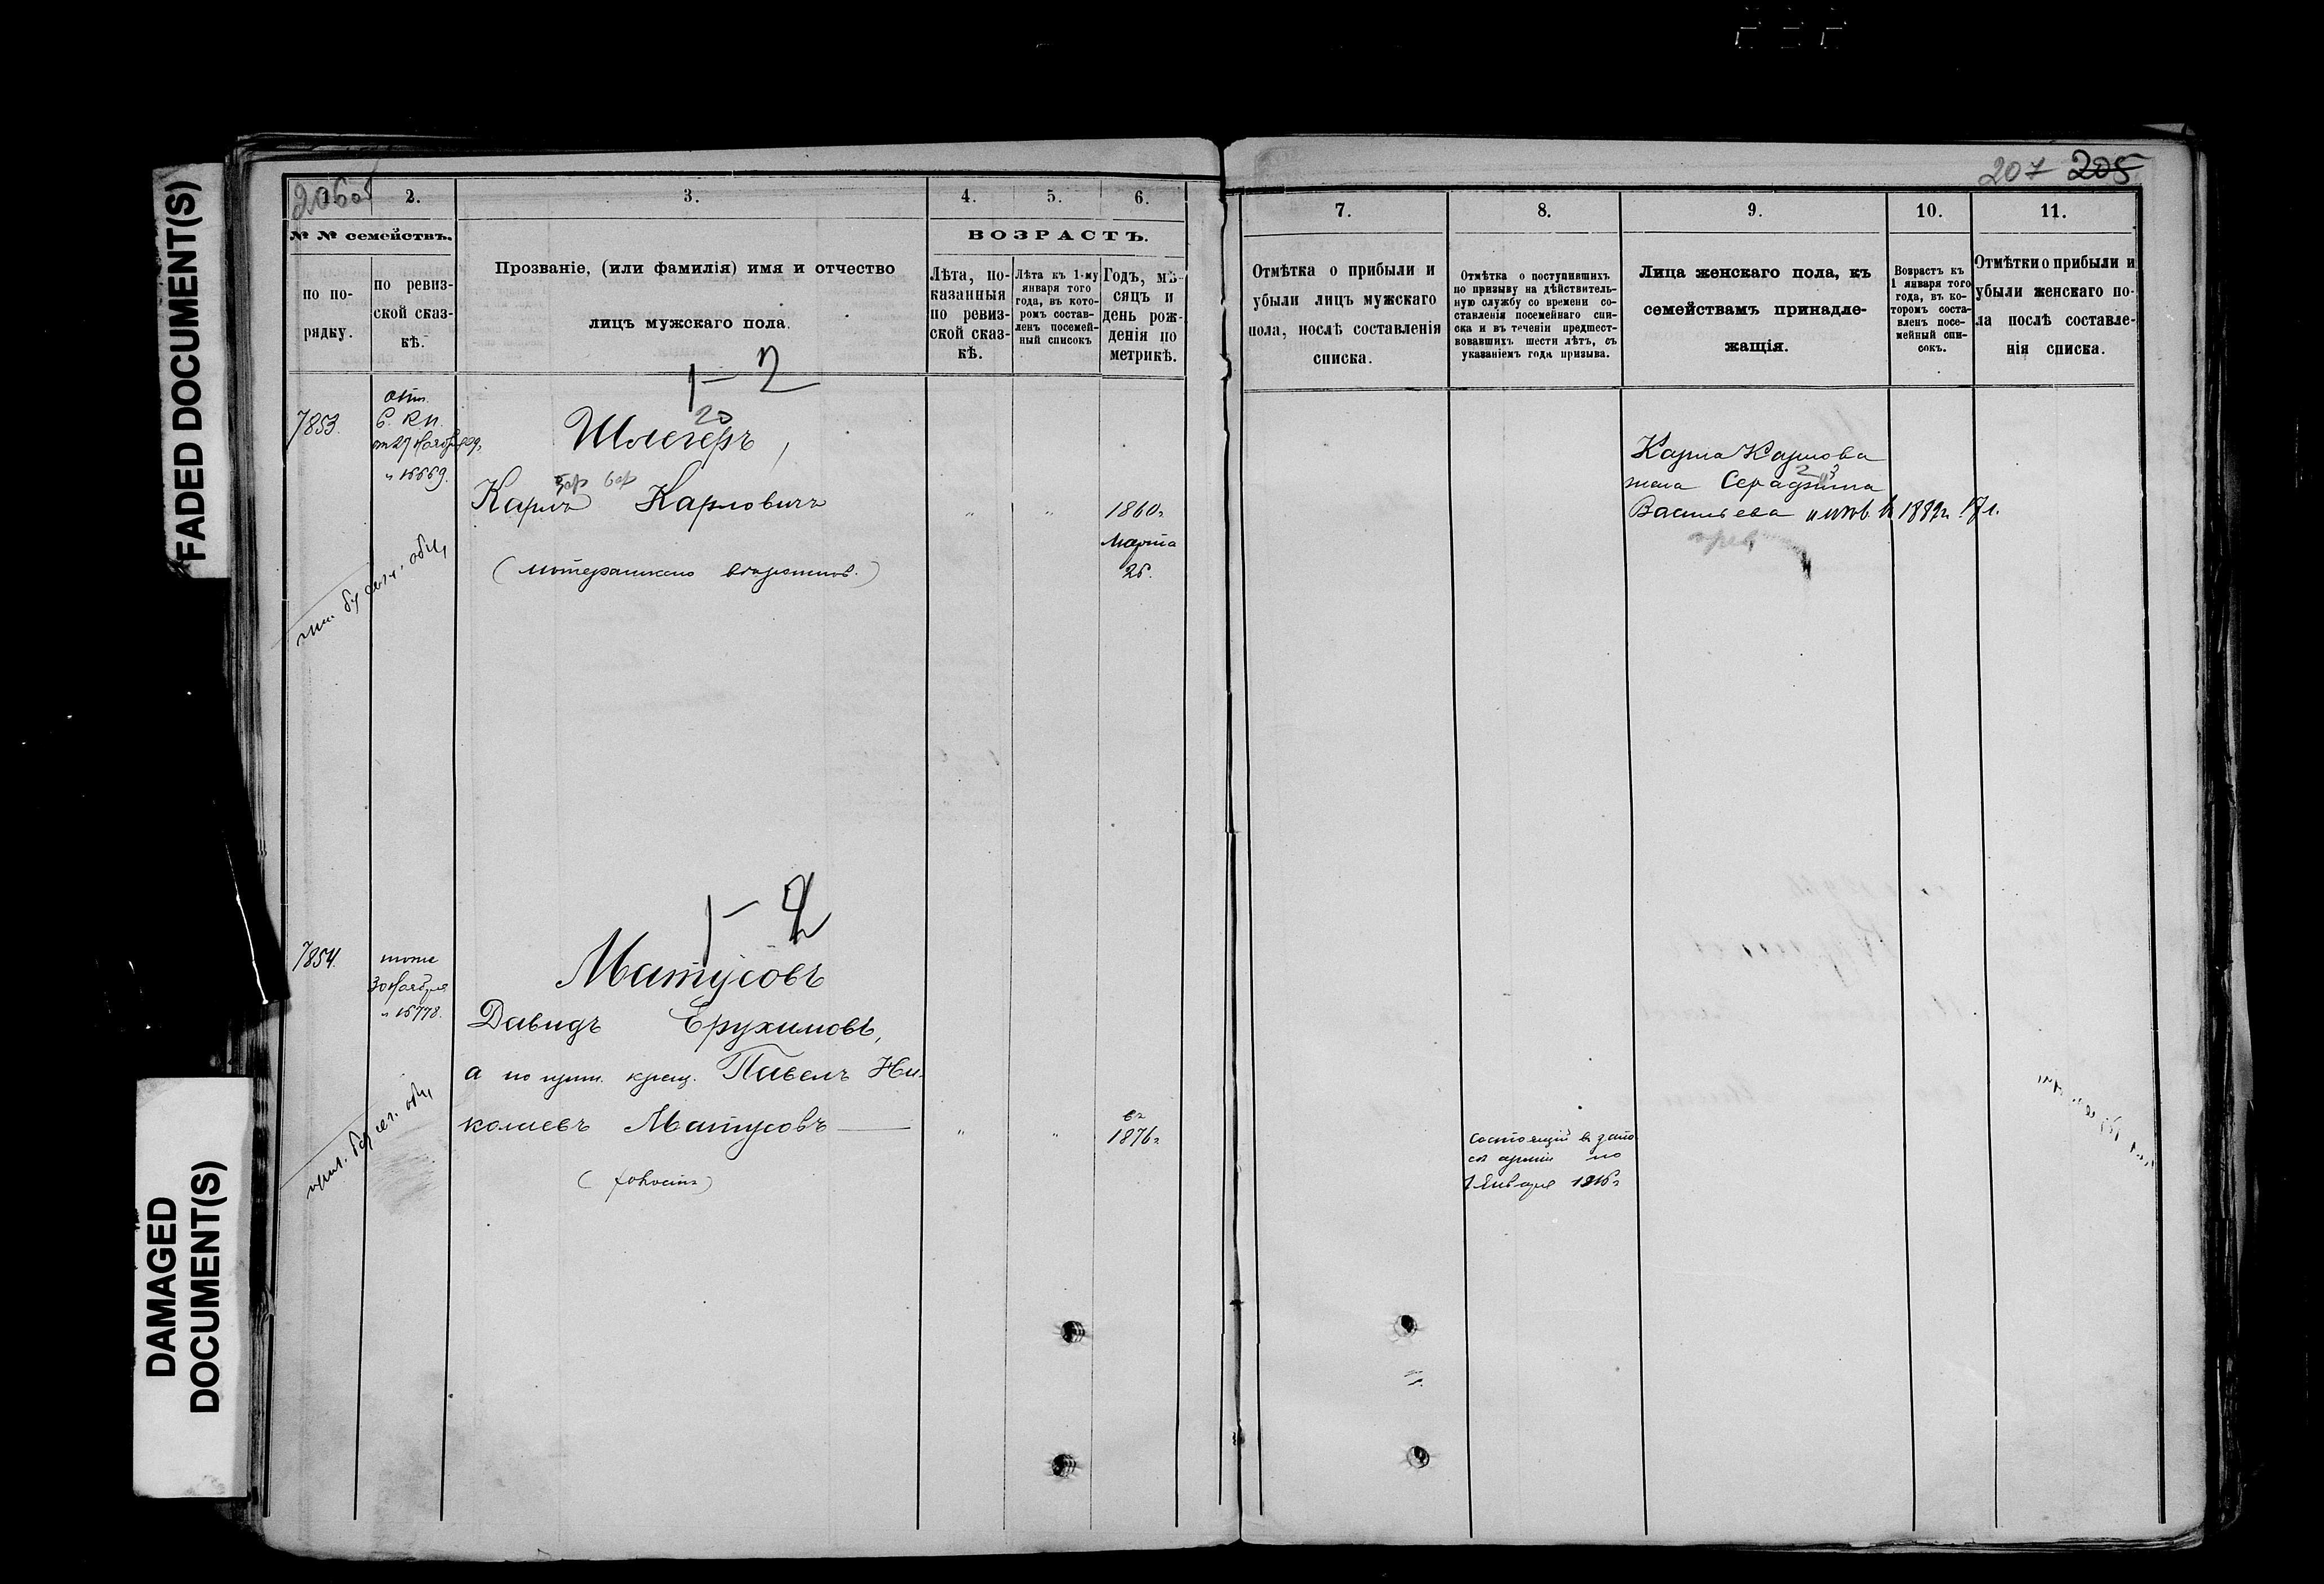 FADED DOCUMENT(S)
DAMAGED
DOCUMENT(S)
207 205
1. 2. 3. 4. 5. 6.
№ № семействъ.
по по-
рядку.
по ревиз-
ской сказ-
кѣ.
Прозваніе, (или фамилія) имя и отчество
лицъ мужскаго пола.
ВОЗРАСТЪ.
Лѣта, по-
казанныя
по ревиз-
ской сказ-
кѣ.
Лѣта къ 1-му
января того
года, въ кото-
ромъ состав-
ленъ посемей-
ный списокъ
Годъ, мѣ-
сяцъ и
день рож-
денія по
метрикѣ.
1 — 2
20
7853.
отн.
от 27 Ноября
Шлегеръ,
Карлъ Карловичъ
1860г
Марта
26.
1 — 2
7854.
тоже
30 Ноября
Матусовъ
Давидъ Ерухимовъ,
а по крещ. Павелъ Ни-
колаевъ Матусовъ
въ
1876г
7. 8. 9. 10. 11.
Отмѣтка о прибыли и
убыли лицъ мужскаго
пола, послѣ составленія
списка.
Отмѣтка о поступившихъ
по призыву на дѣйствитель-
ную службу со времени со-
ставленія посемейнаго спи-
ска и въ теченіи предшест-
вовавшихъ шести лѣтъ, съ
указаніемъ года призыва.
Лица женскаго пола, къ
семействамъ принадле-
жащія.
Возрастъ къ
1 января того
года, въ ко-
торомъ соста-
вленъ посе-
мейный спи-
сокъ.
Отмѣтки о прибыли и
убыли женскаго по-
ла послѣ составле-
нія списка.
Карла Карлова
жена Серафима
Васильева
Состоящій въ запа
сѣ арміи по
1 Января 1916г